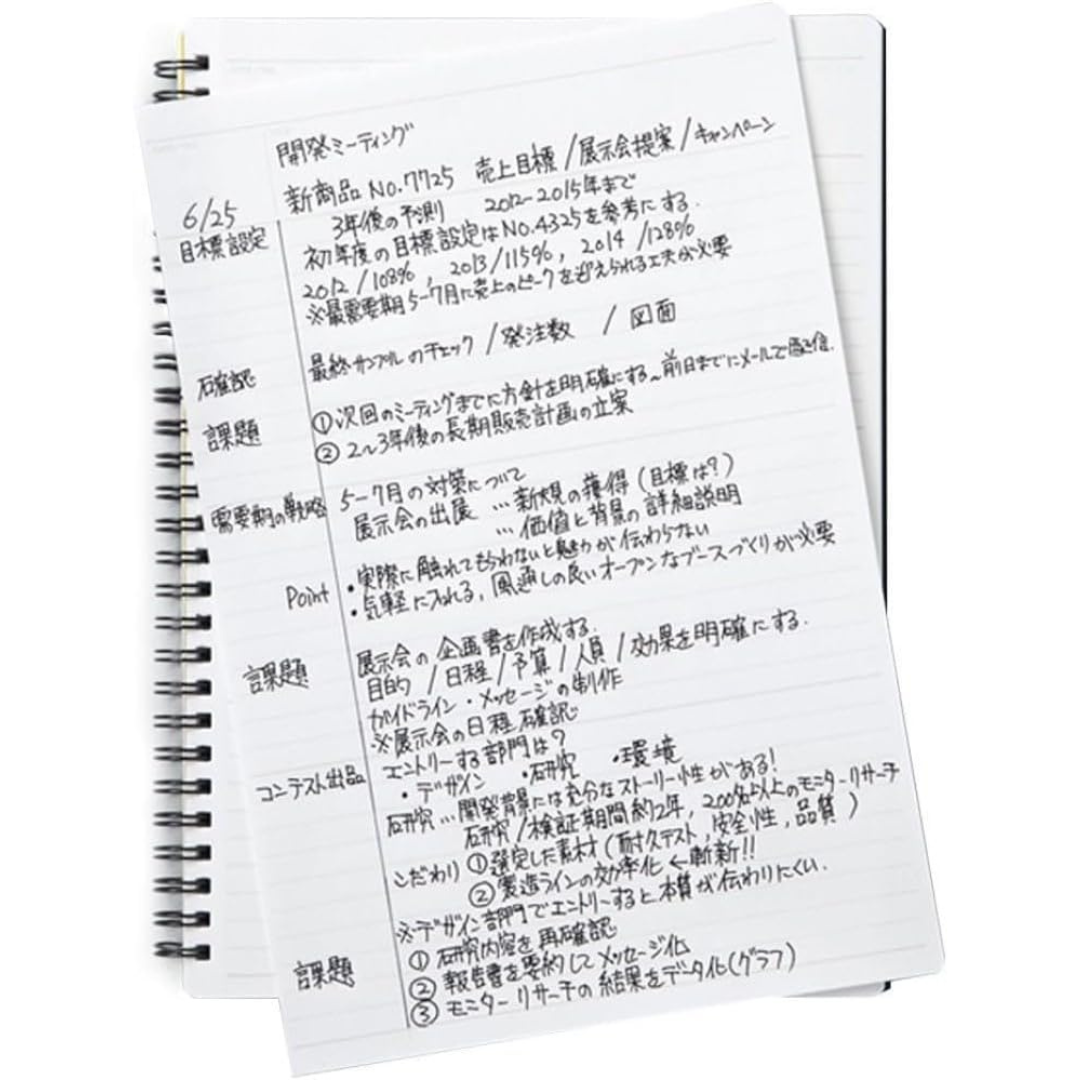 開発ミーティング
6/25 新商品 No.7725 売上目標/展示会提案/キャンペーン
目標設定 3年後の予測 2012-2015年まで
初年度の目標設定はNo.4325を参考にする.
2012/108%, 2013/115%, 2014/128%
※最需要期5-7月に売上のピークを迎えられる工夫が必要
確認 最終サンプルのチェック/発注数 / 図面
課題 ①次回のミーティングまでに方針を明確にする~前日までにメールで配信.
② 2~3年後の長期販売計画の立案
需要期の戦略 5-7月の対策について
展示会の出展 …新規の獲得(目標は?)
…価値と背景の詳細説明
Point ・実際に触れてもらわないと魅力が伝わらない
・気軽に入れる,風通しの良いオープンなブースづくりが必要
課題 展示会の企画書を作成する.
目的/日程/予算/人員/効果を明確にする.
ガイドライン・メッセージの制作
※展示会の日程確認
コンテスト出品 エントリーする部門は?
・デザイン ・研究 ・環境
研究…開発背景には充分なストーリー性がある!
研究/検証期間約2年,200名以上のモニターリサーチ
こだわり ①選定した素材(耐久テスト,安全性,品質)
②製造ラインの効率化←斬新!!
※デザイン部門でエントリーすると本質が伝わりにくい.
課題 ①研究内容を再確認
②報告書を要約してメッセージ化
③モニターリサーチの結果をデータ化(グラフ)